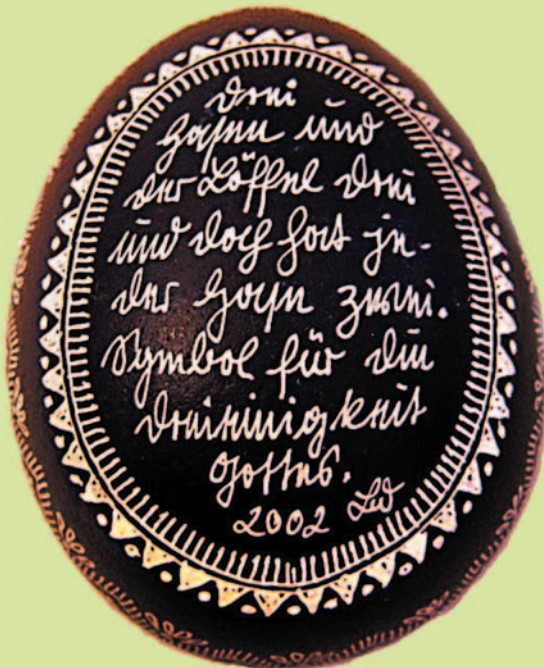 Drei
Hasen und
der Löffel drei
und doch hat je-
der Hase zwei.
Symbol für die
Dreieinigkeit
Gottes.
2002